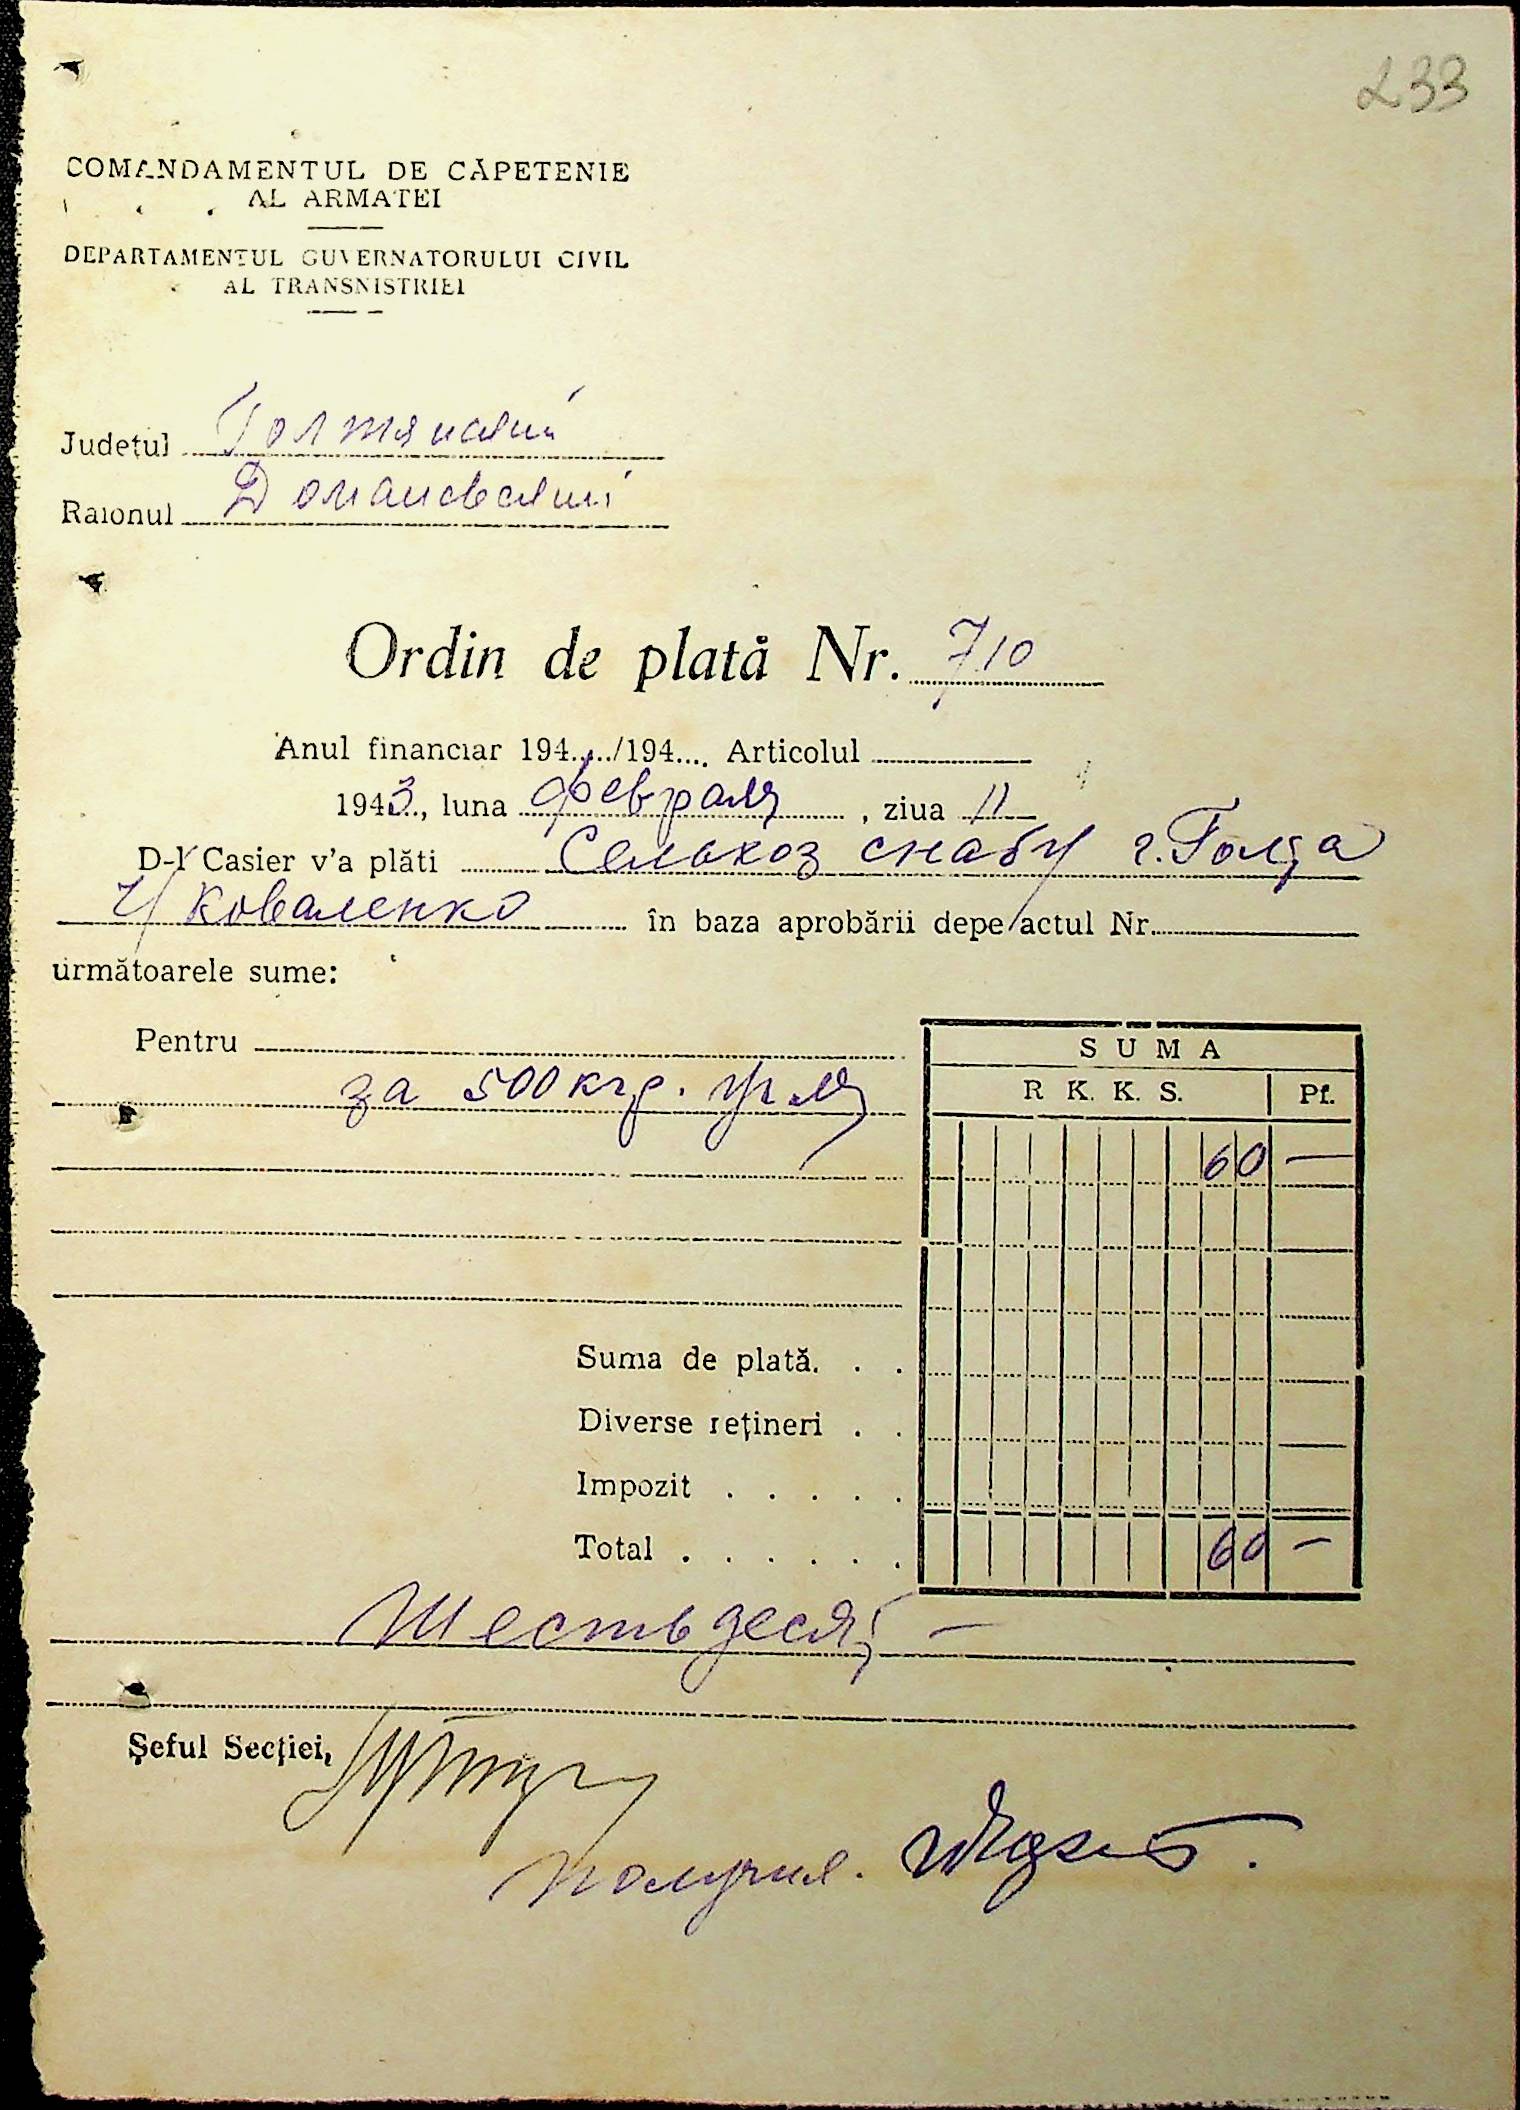 233
COMANDAMENTUL DE CĂPETENIE
AL ARMATEI
DEPARTAMENTUL GUVERNATORULUI CIVIL
AL TRANSNISTRIEI
Județul Голтянский
Raionul Доманевский
Ordin de plată Nr. 710
Anul financiar 194..../194.... Articolul
1943, luna февраля, ziua 11
D-l Casier v'a plăti Сельхоз снабу г. Голта
Коваленко în baza aprobării depe actul Nr.
următoarele sume:
Pentru
SUMA
за 500 кгр.
R K. K. S. Pf.
60 —
Suma de plată. . .
Diverse rețineri . .
Impozit . . . . .
Total . . . . . . 60 —
Шестьдесят —
Șeful Secției,
Получил.